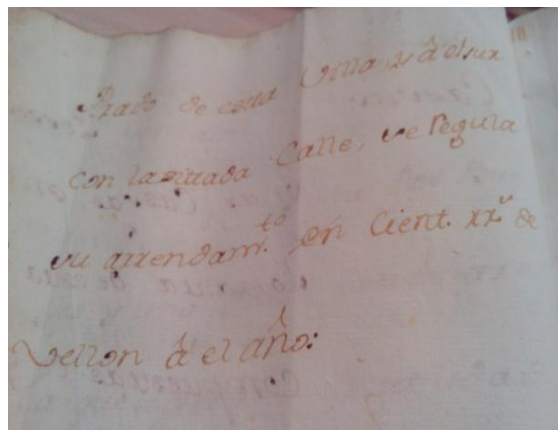 Prado de esta Villa, y â el sur
con la zitada Calle, se Regula
su arrendam.to en Cient. rr.s de
Vellon â el año: